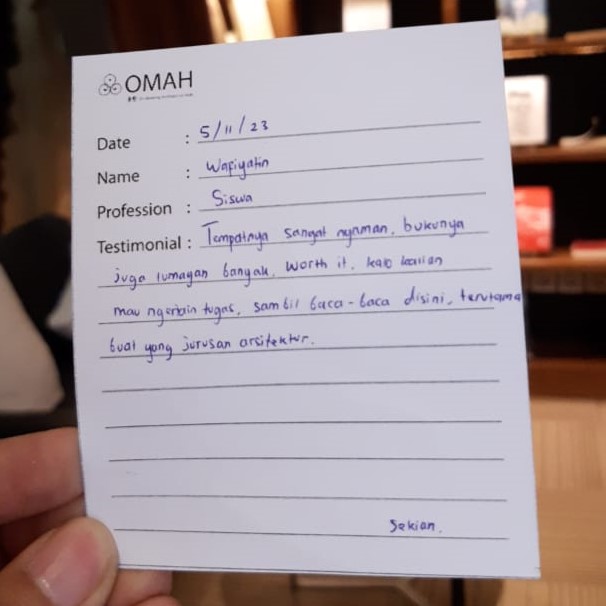 OMAH
Date : 5/11/23
Name : Wafiyatin
Profession : Siswa
Testimonial : Tempatnya sangat nyaman, bukunya
juga lumayan banyak, worth it, kalo kalian
mau ngerjain tugas, sambil baca-baca disini, terutama
buat yang jurusan arsitektur.
Sekian.